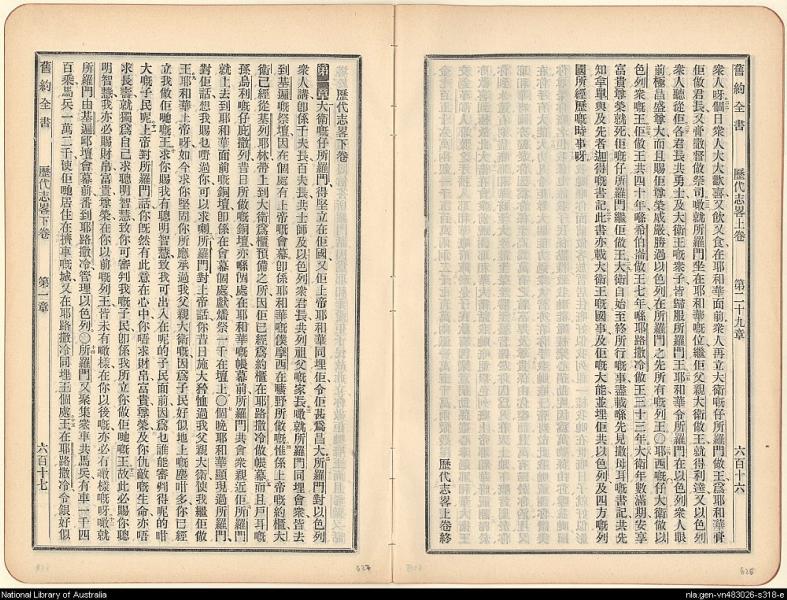 舊約全書 歷代志畧上卷 第二十九章 六百十六
衆人呀個日衆人大大歡喜又飲又食在耶和華面前衆人再立大衛嘅仔所羅門做王爲耶和華膏
佢做君長又膏撒督做祭司噉就所羅門坐在耶和華嘅位繼佢父親大衛做王就得利達又以色列
衆人聽從佢各君長共勇士及大衛王嘅衆子皆歸服所羅門王耶和華令所羅門在以色列衆人眼
前極昌盛尊大而且賜佢尊榮威嚴勝過以色列在所羅門之先所有嘅列王○耶西嘅仔大衛做以
色列衆嘅王佢做王共四十年喺希伯崙做王七年喺耶路撒冷做王三十三年大衛年數滿期安享
富貴尊榮就死佢嘅仔所羅門繼佢做王大衛自始至終所行嘅事盡載喺先見撒母耳嘅書記共先
知拿單與及先者迦得嘅書記此書亦載大衛王嘅國事及佢嘅大能並埋佢共以色列及四方嘅列
國所經歷嘅時事呀
歷代志畧上卷終
626
歷代志畧下卷
大衛嘅仔所羅門得堅立在佢國又佢上帝耶和華同埋佢令佢甚爲昌大所羅門對以色列
衆人講卽係千夫長百夫長共士師及以色列衆君長共列祖父嘅家長噉就所羅門同埋會衆皆去
到基遍嘅祭壇因在個處有上帝嘅會幕卽係耶和華嘅僕摩西在曠野所做嘅惟係上帝嘅約櫃大
衛已經從基列耶林帶上到大衛爲櫃預備之所因佢已經爲約櫃在耶路撒冷做帳幕而且戶耳嘅
孫烏利嘅仔庇撒列昔日所做嘅銅壇亦喺個處在耶和華嘅帳幕前所羅門共會衆親近佢所羅門
就上去到耶和華面前嘅銅壇卽係在會幕個處獻燔祭一千在壇上○個晚耶和華顯現過所羅門
對佢話想我賜乜嘢過你可以求喇所羅門對上帝話你昔日施大矜恤過我父親大衛使我繼佢做
王耶和華上帝呀如今求你堅固你所應承過我父親大衛嘅因爲子民好似地上嘅塵咁多你已經
立我做佢哋嘅王求你賜我有聰明智慧致我可出入在呢的子民面前因爲乜誰能審判得呢的咁
大嘅子民呢上帝對所羅門話你旣然有此意在心中你唔求財帛富貴尊榮及你仇敵嘅生命亦唔
求長壽就獨爲自己求聰明智慧致你可審判我嘅子民卽係我所立你做佢哋嘅王故此必賜你聰
明智慧我亦必賜財帛富貴尊榮在你以前嘅列王皆未有噉樣在你以後嘅亦必有噉樣嘅呀噉就
所羅門由基遍邱壇會幕前番到耶路撒冷管理以色列○所羅門又聚集衆車共馬兵有車一千四
百乘馬兵一萬二千使佢哋居住在擠車嘅城又在耶路撒冷同埋王個處王在耶路撒冷令銀好似
舊約全書 歷代志畧下卷 第一章 六百十七
627
National Library of Australia
nla.gen-vn483026-s318-e